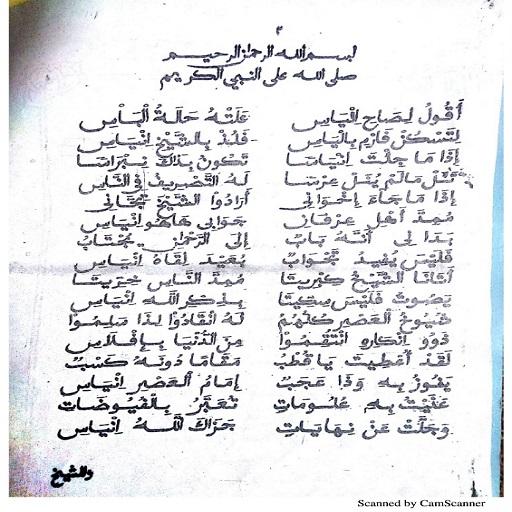 ٢
بسم الله الرحمن الرحيم
صلى الله على النبي الكريم
أَقُولُ لِصَاحِ إِنْيَاسِ عَلَتْهُ حَالَةُ الْبَأْسِ
لِتَسْكُنْ فَلُذْ بِالشَّيْخِ إِنْيَاسِ
إِذَا مَا جِئْتَ إِنْيَاسَا تَكُونُ بِذَاكَ
مَالَمْ لَهُ التَّصْرِيفُ فِي النَّاسِ
إِذَا مَا جَاءَ إِخْوَانِي أَرَادُوا الشَّيْخَ تِجَانِي
مُمِدَّ أَهْلِ عِرْفَانِ جَوَابِي هَاهُوَ إِنْيَاسِ
بَدَا لِي أَنَّهُ بَابُ إِلَى الرَّحْمٰنِ
فَلَيْسَ يُفِيدُ بَعِيدَ لِقَاهُ إِنْيَاسِ
أَتَانَا الشَّيْخُ كِبْرِيتَا مُمِدَّ النَّاسِ خِرِّيتَا
يَصُوتُ فَلَيْسَ سِكِّيتَا بِذِكْرِ اللّٰهِ إِنْيَاسِ
شُيُوخُ الْعَصْرِ كُلُّهُمُ لَهُ انْقَادُوا لِذَا سَلِمُوا
ذَوُو إِنْكَارِهِ انْتَقَمُوا مِنَ الدُّنْيَا بِإِفْلَاسِ
لَقَدْ أُعْطِيتَ يَا قُطْبُ مَقَامًا دُونَهُ كَسْبُ
يَفُوزُ بِهِ وَذَا عَجَبُ إِمَامُ الْعَصْرِ إِنْيَاسِ
بِهِ عُلُومَاتِ تُعَبَّرُ بِالْفُيُوضَاتِ
وَجَلَّتْ عَنْ نِهَايَاتِ جَزَاكَ اللّٰهُ إِنْيَاسِ
والشيخ
Scanned by CamScanner